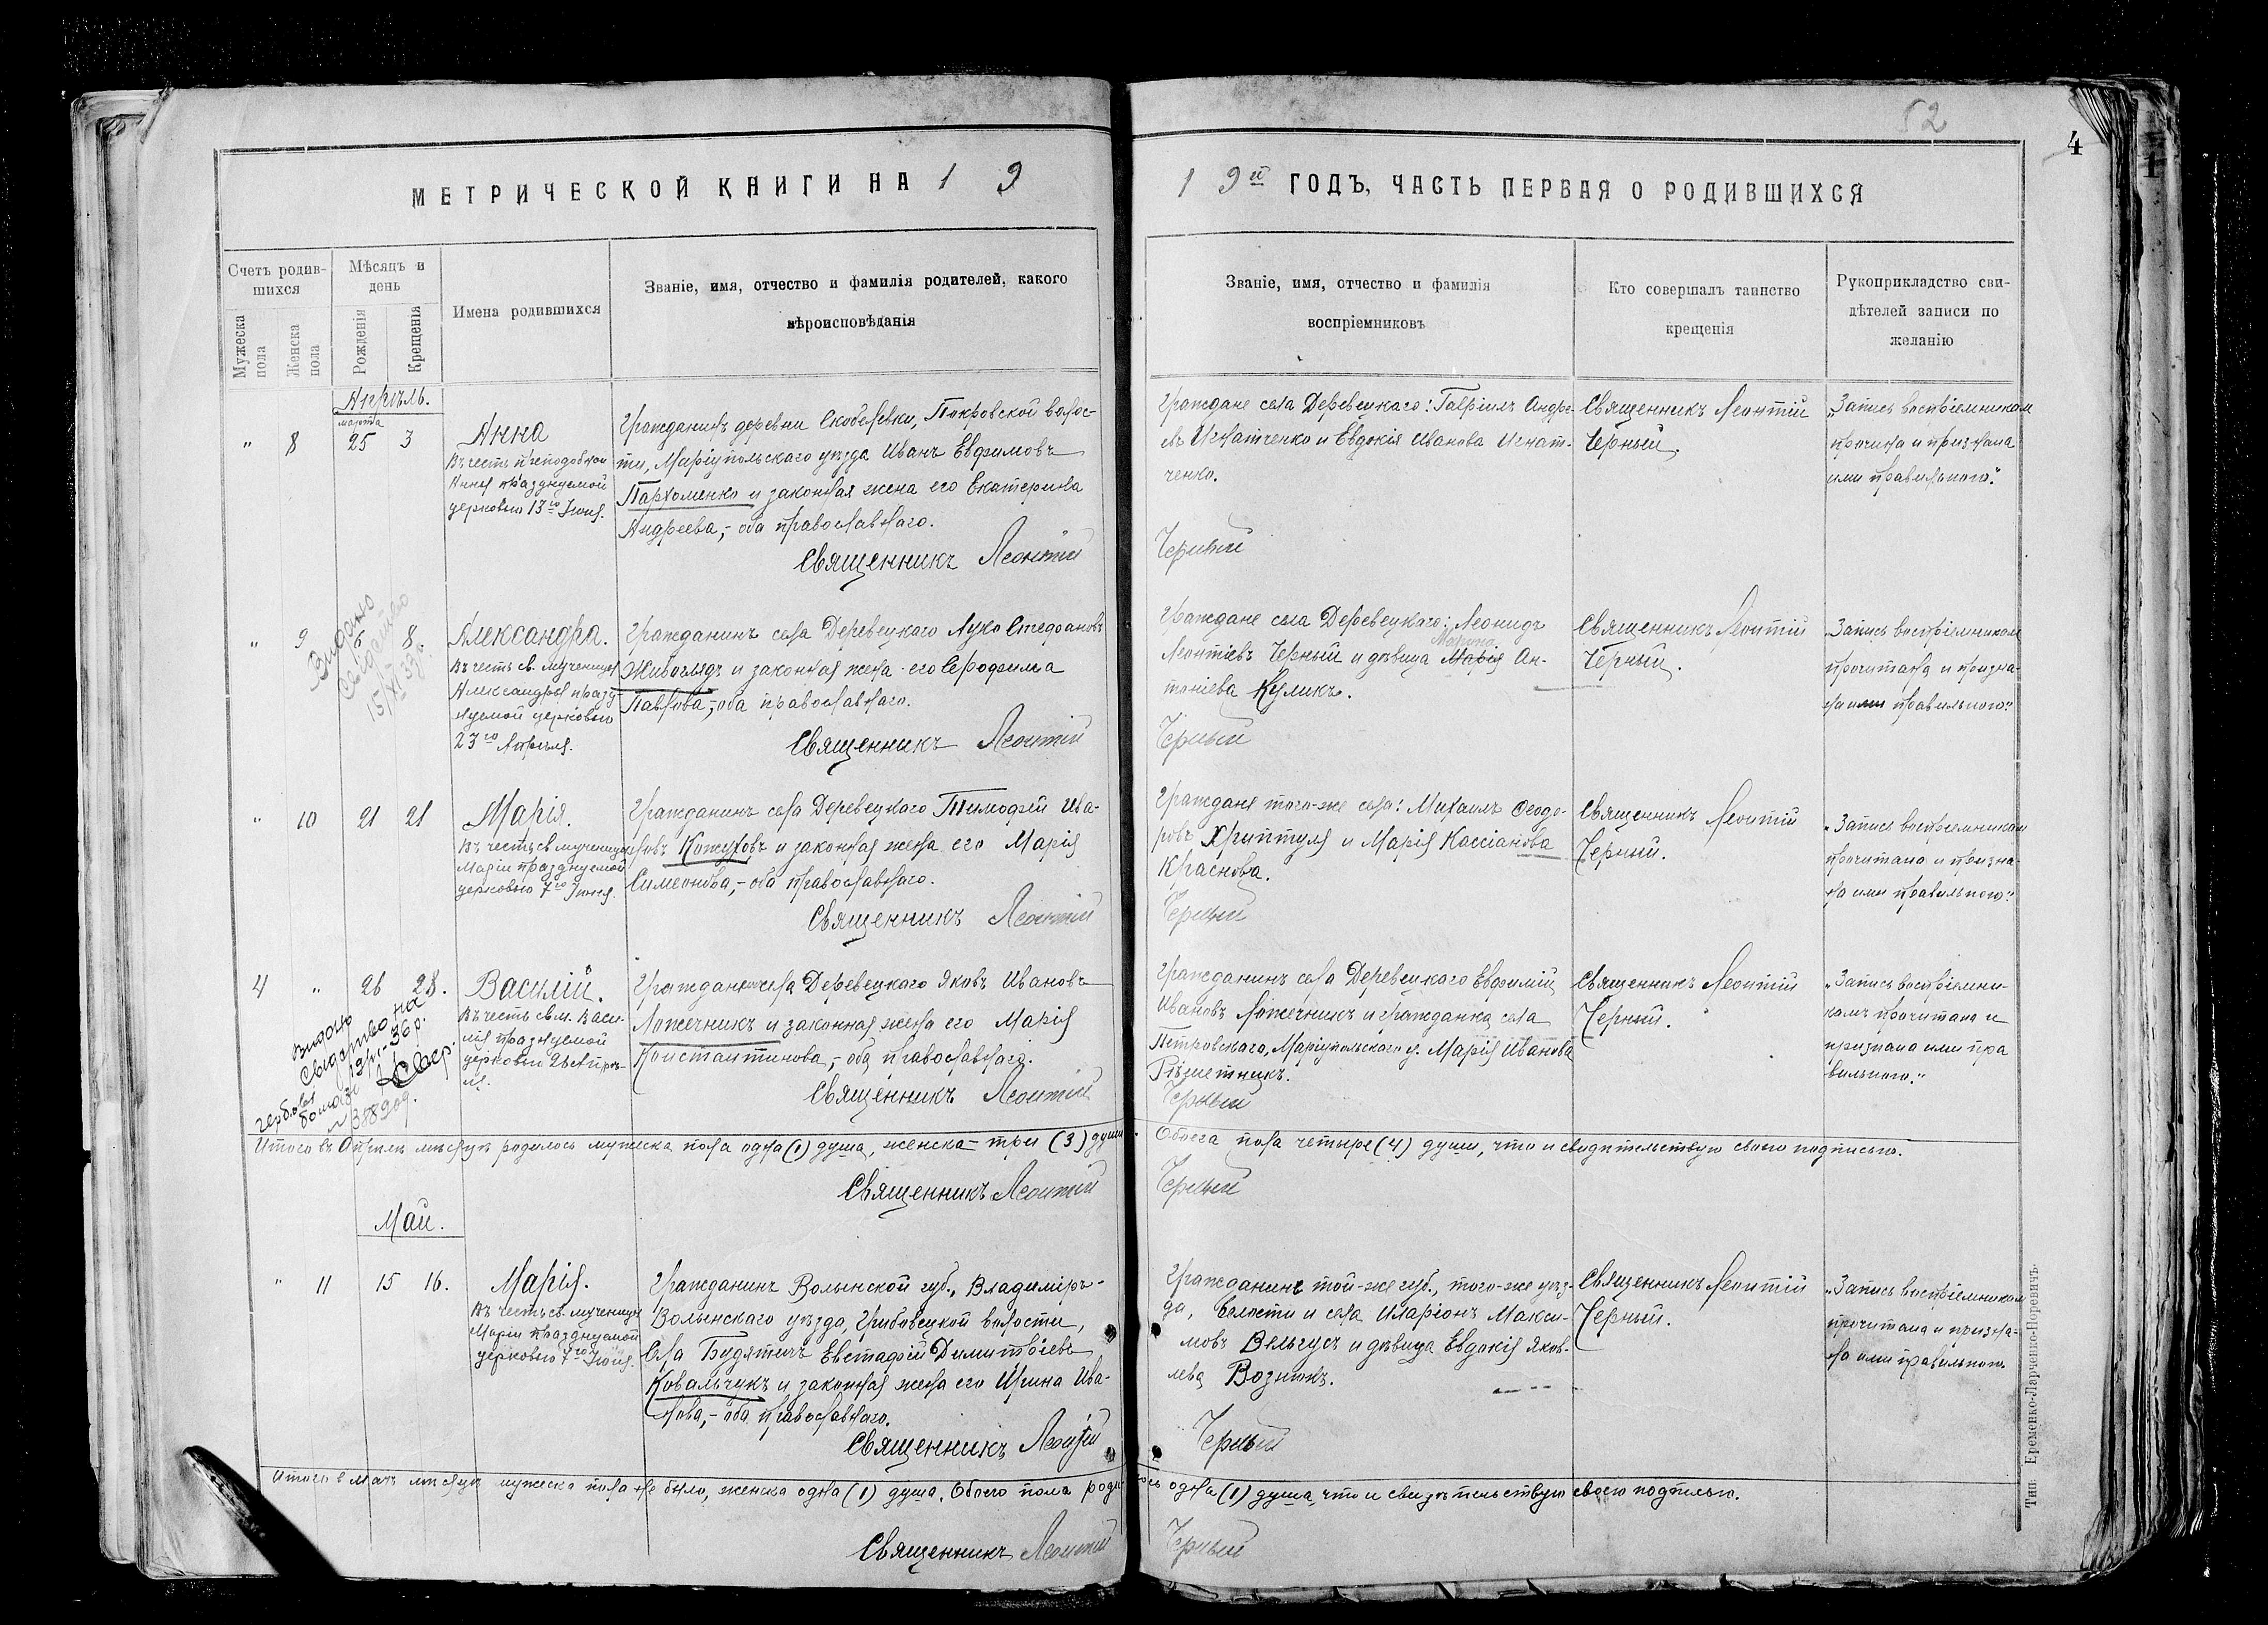 52
4
МЕТРИЧЕСКОЙ КНИГИ НА 1 9
1 9й ГОДЪ, ЧАСТЬ ПЕРВАЯ О РОДИВШИХСЯ
Счетъ родив-
шихся
Мужеска
пола
Женска
пола
Мѣсяцъ и
день
Рожденія
Крещенія
Имена родившихся
Званіе, имя, отчество и фамилія родителей, какого
вѣроисповѣданія
Званіе, имя, отчество и фамилія
воспріемниковъ
Кто совершалъ таинство
крещенія
Рукоприкладство сви-
дѣтелей записи по
желанію
Апрѣль.
марта
" 8 25 3
Анна
Въ честь преподобной
Анны празднуемой
церковью 13го Іюня.
Гражданинъ деревни Скобелевки, Покровской волос-
ти, Маріупольскаго уѣзда Иванъ Евфимовъ
Пархоменко и законная жена его Екатерина
Андреева,- оба православнаго.
Священникъ Леонтій
Граждане села Деревецкаго: Гавріилъ Андре-
евъ Игнатченко и Евдокія Иванова Игнат-
ченко.
Черный
Священникъ Леонтій
Черный.
"Запись воспріемникам
прочитана и признана
ими правильною."
" 9 6 8.
Видано
свідоцтво
Александра.
Въ честь св. мученицы
Александры празд-
нуемой церковью
23го Апрѣля.
Гражданинъ села Деревецкаго Лука Стефановъ
Живоглядъ и законная жена его Серафима
Павлова,- оба православнаго.
Священникъ Леонтій
Граждане села Деревецкаго: Леонидъ
Марина
Леонтіевъ Черный и дѣвица Марія Ан-
тоніева Куликъ.
Черный
Священникъ Леонтій
Черный.
"Запись воспріемникам
прочитана и призна-
на ими правильною."
" 10 21 21
Марія.
Въ честь св. мученицы
Маріи празднуемой
церковью 7го Іюня.
Гражданинъ села Деревецкаго Тимофей Ива-
новъ Кожуховъ и законная жена его Марія
Симеонова,- оба православнаго.
Священникъ Леонтій
Граждане того-же села: Михаилъ Феодо-
ровъ Хриптуля и Марія Кассіанова
Краснова.
Черный
Священникъ Леонтій
Черный.
"Запись воспріемникам
прочитана и призна-
на ими правильною."
4 " 26 28.
Видано
свидоцтво на
гербовая
Василій.
Въ честь св. м. Васи-
лія празднуемой
церковью 26 Апрѣ-
ля.
Гражданинъ села Деревецкаго Яковъ Ивановъ
Ложечникъ и законная жена его Марія
Константинова,- оба православнаго.
Священникъ Леонтій
Гражданинъ села Деревецкаго Евфимій
Ивановъ Ложечникъ и гражданка села
Петровскаго, Маріупольскаго у. Марія Иванова
Рѣшетникъ.
Черный
Священникъ Леонтій
Черный.
"Запись воспріемни-
камъ прочитана и
признана ими пра
вильною."
Итого въ Апрѣлѣ мѣсяцѣ родилось мужеска пола одна (1) душа, женска - три (3) души.
Обоего пола четыре (4) души, что и свидѣтельствую своею подписью.
Священникъ Леонтій
Черный
Май.
" 11 15 16.
Марія.
Въ честь св. мученицы
Маріи празднуемой
церковью 7го Іюня.
Гражданинъ Волынской губ., Владиміръ-
Волынскаго уѣзда, Грибовецкой волости,
села Будятичъ Евстафій Димитріевъ
Ковальчукъ и законная жена его Ирина Ива-
нова,- оба православнаго.
Священникъ Леонтій
Гражданинъ той-же губ., того-же уѣз-
да, волости и села Иларіонъ Макси-
мовъ Вельгусъ и дѣвица Евдокія Яков-
лева Вознюкъ.
Черный
Священникъ Леонтій
Черный.
"Запись воспріемникам
прочитана и призна-
на ими правильною.
Итого в маѣ мѣсяцѣ мужеска пола не было, женска одна (1) душа. Обоего пола роди
лось одна (1) душа, что и свидѣтельствую своею подписью.
Священникъ Леонтій
Черный
Тип. Еременко-Ларченко-Норевичъ.